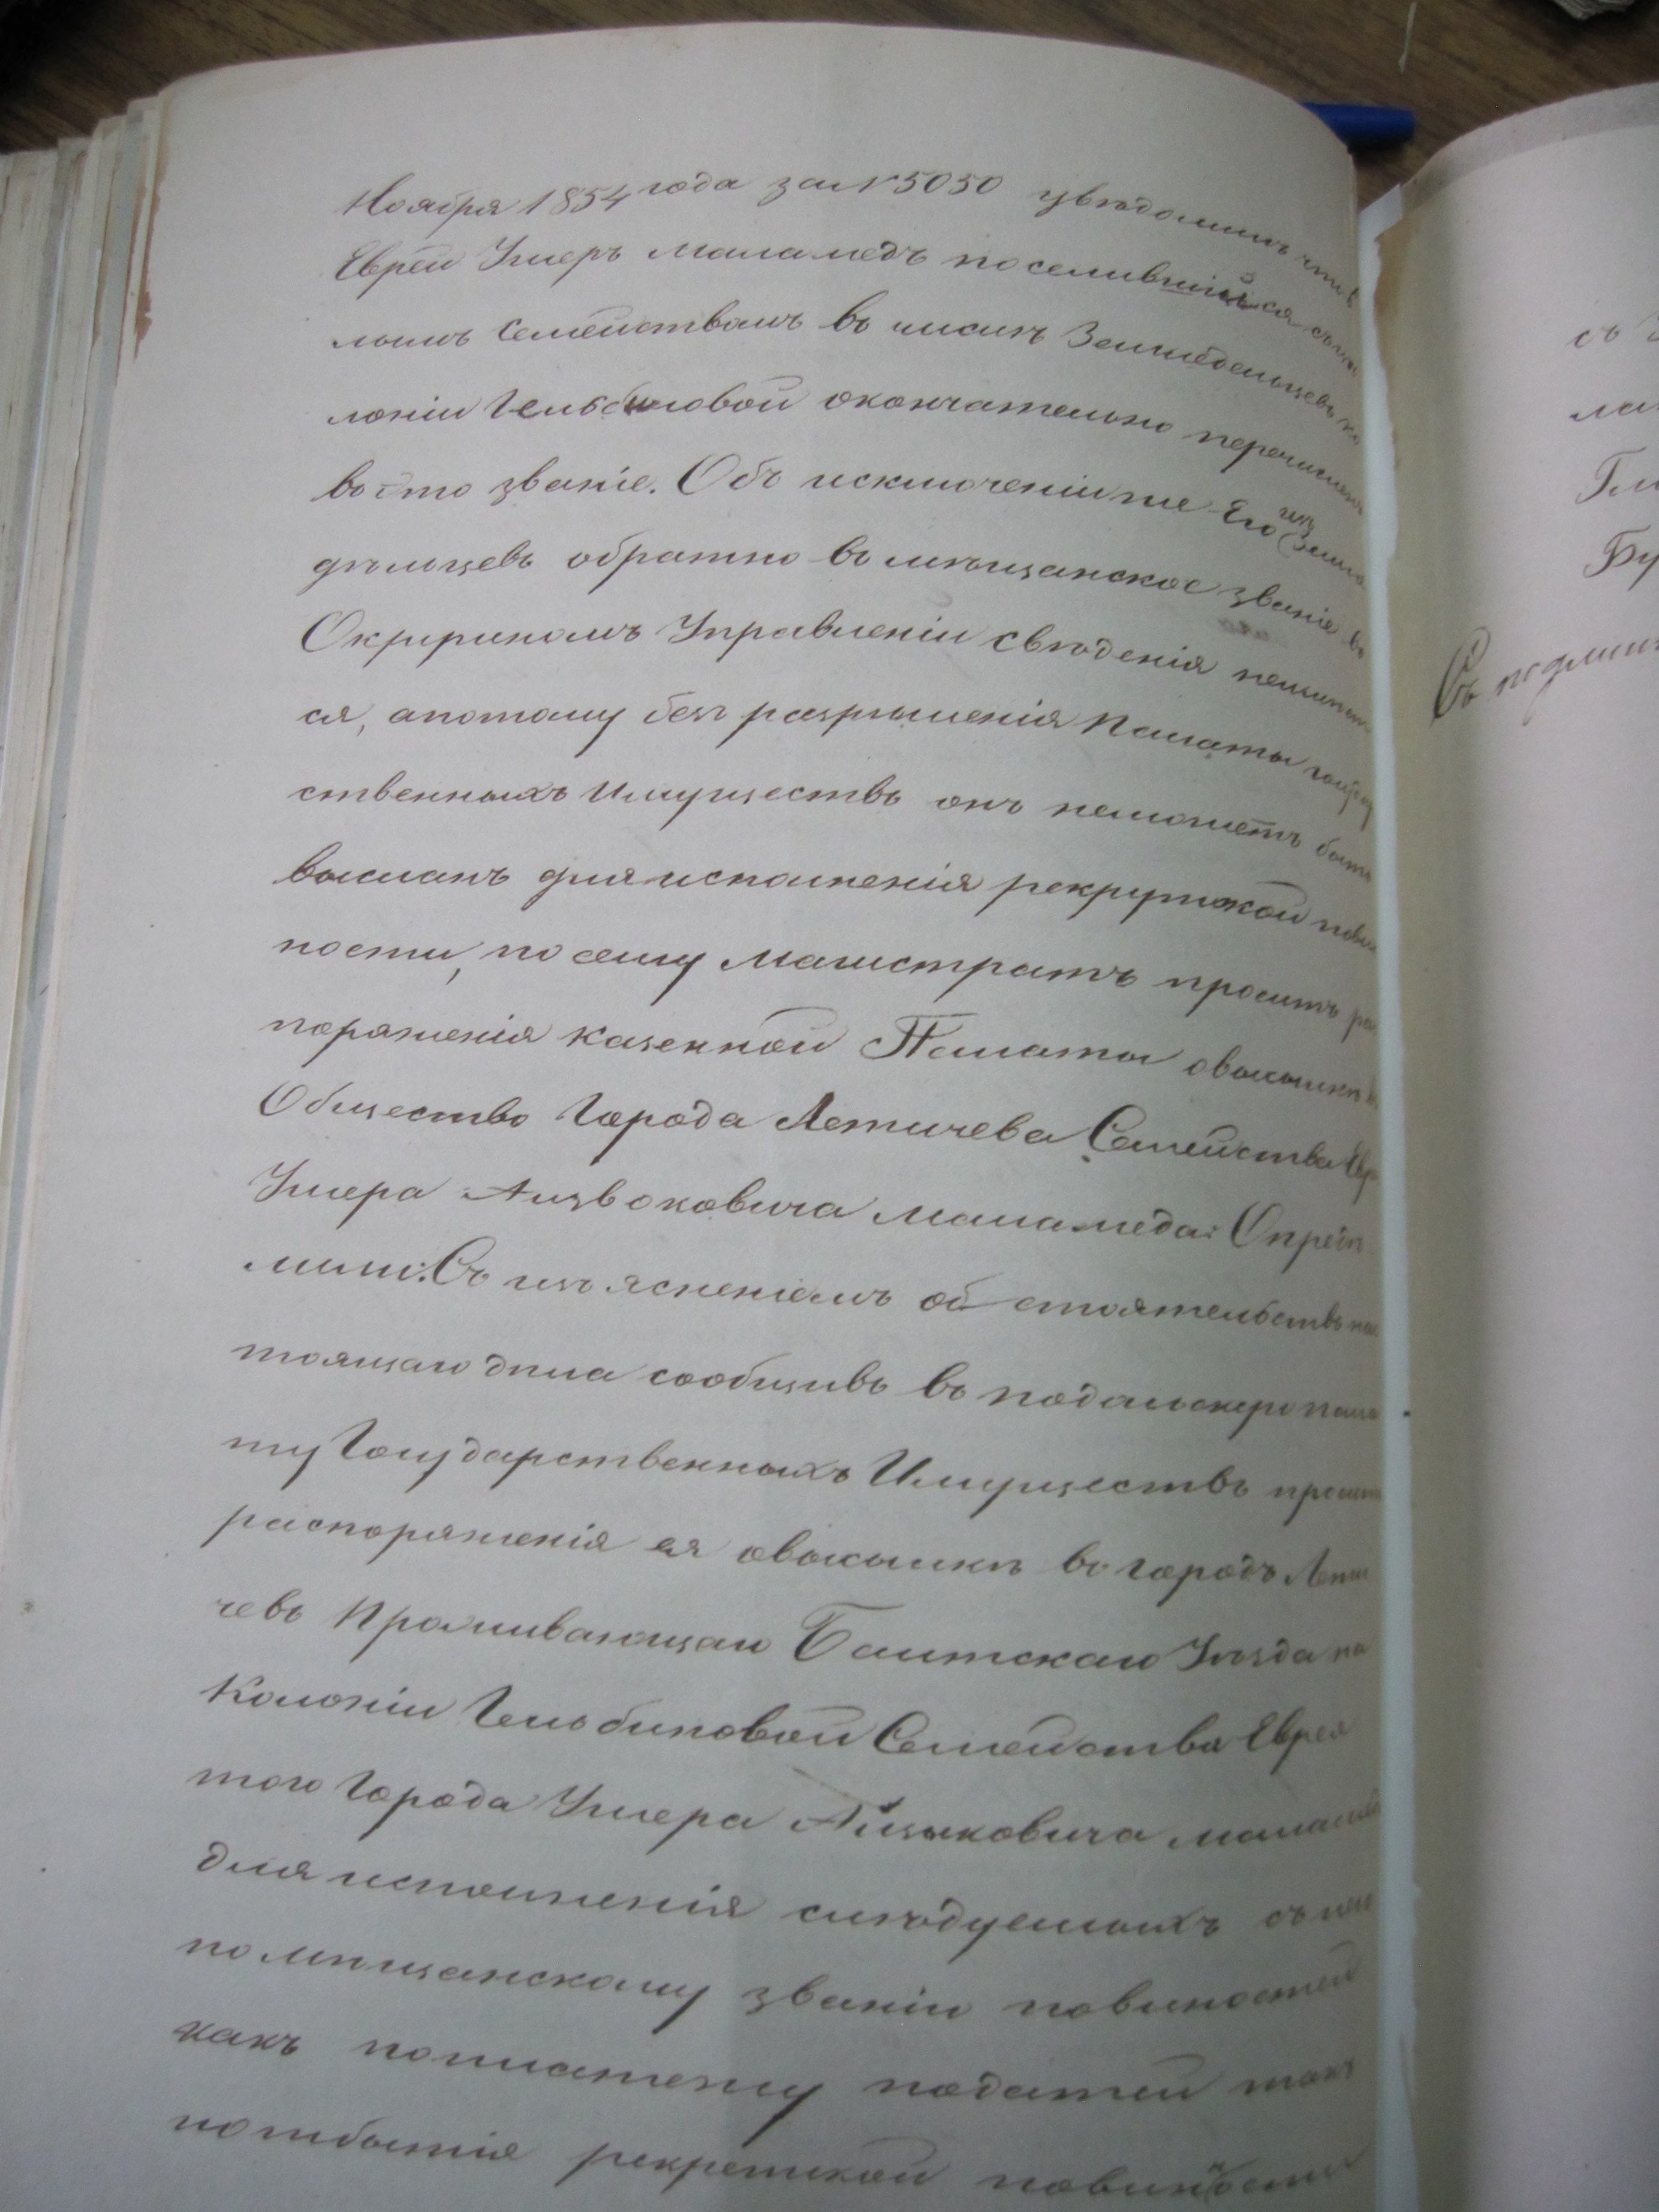 Ноября 1854 года за №5050 увѣдомилъ что
Еврей Умеръ Маламедъ поселившійся съ
лымъ Семействомъ въ числѣ Земледельцевъ ко
лоніи Гельбиновой окончательно перечисленъ
въ это званіе. Объ исключеніи же Его изъ Земле
дѣльцевъ обратно въ мѣщанское званіе въ
Окружномъ Управленіи Свѣденія неимѣет
ся, апотому безъ разрѣшенія Палаты госуда
ственныхъ Имуществъ онъ неможетъ быть
высланъ для исполненія рекрутской повин
ности, по сему Магистратъ проситъ рас
поряженія казенной Палаты овысылкѣ въ
Общество Города Летичева Семейства Евр
Умера Маламеда: Опредѣ
лили: Съ изъясненіемъ обстоятельствъ нас
тоящаго дѣла сообщивъ въ подольскую пала
ту Государственныхъ Имуществъ просить
распоряженія ея овысылкѣ въ городъ Лети
чевъ Проживающаго Балтскаго Уѣзда на
Колоніи Гельбиновой Семейства Еврея
того Города Умера Айзыковича Маламед
для исполненія слѣдуемыхъ съ нег
по мѣщанскому званію повиностей
какъ поплатежу податей такъ
рекретской повинности